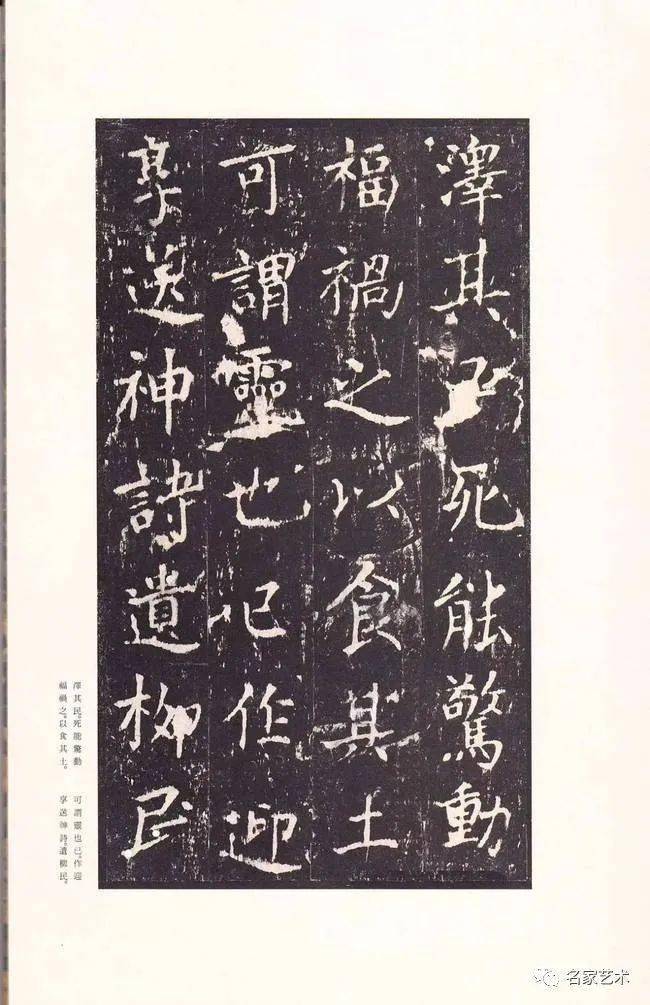 澤其民死能驚動
福禍之以食其土
可謂靈也已作迎
享送神詩遺柳民
澤其民。死能驚動
福禍之。以食其土。
可謂靈也已。作迎
享送神詩。遺柳民。
名家艺术